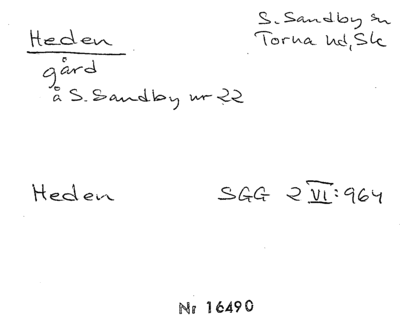 Heden
S. Sandby sn
Torna hd, Sk
gård
å S. Sandby nr 22
Heden SGG 2 VI: 964
Nr 16490